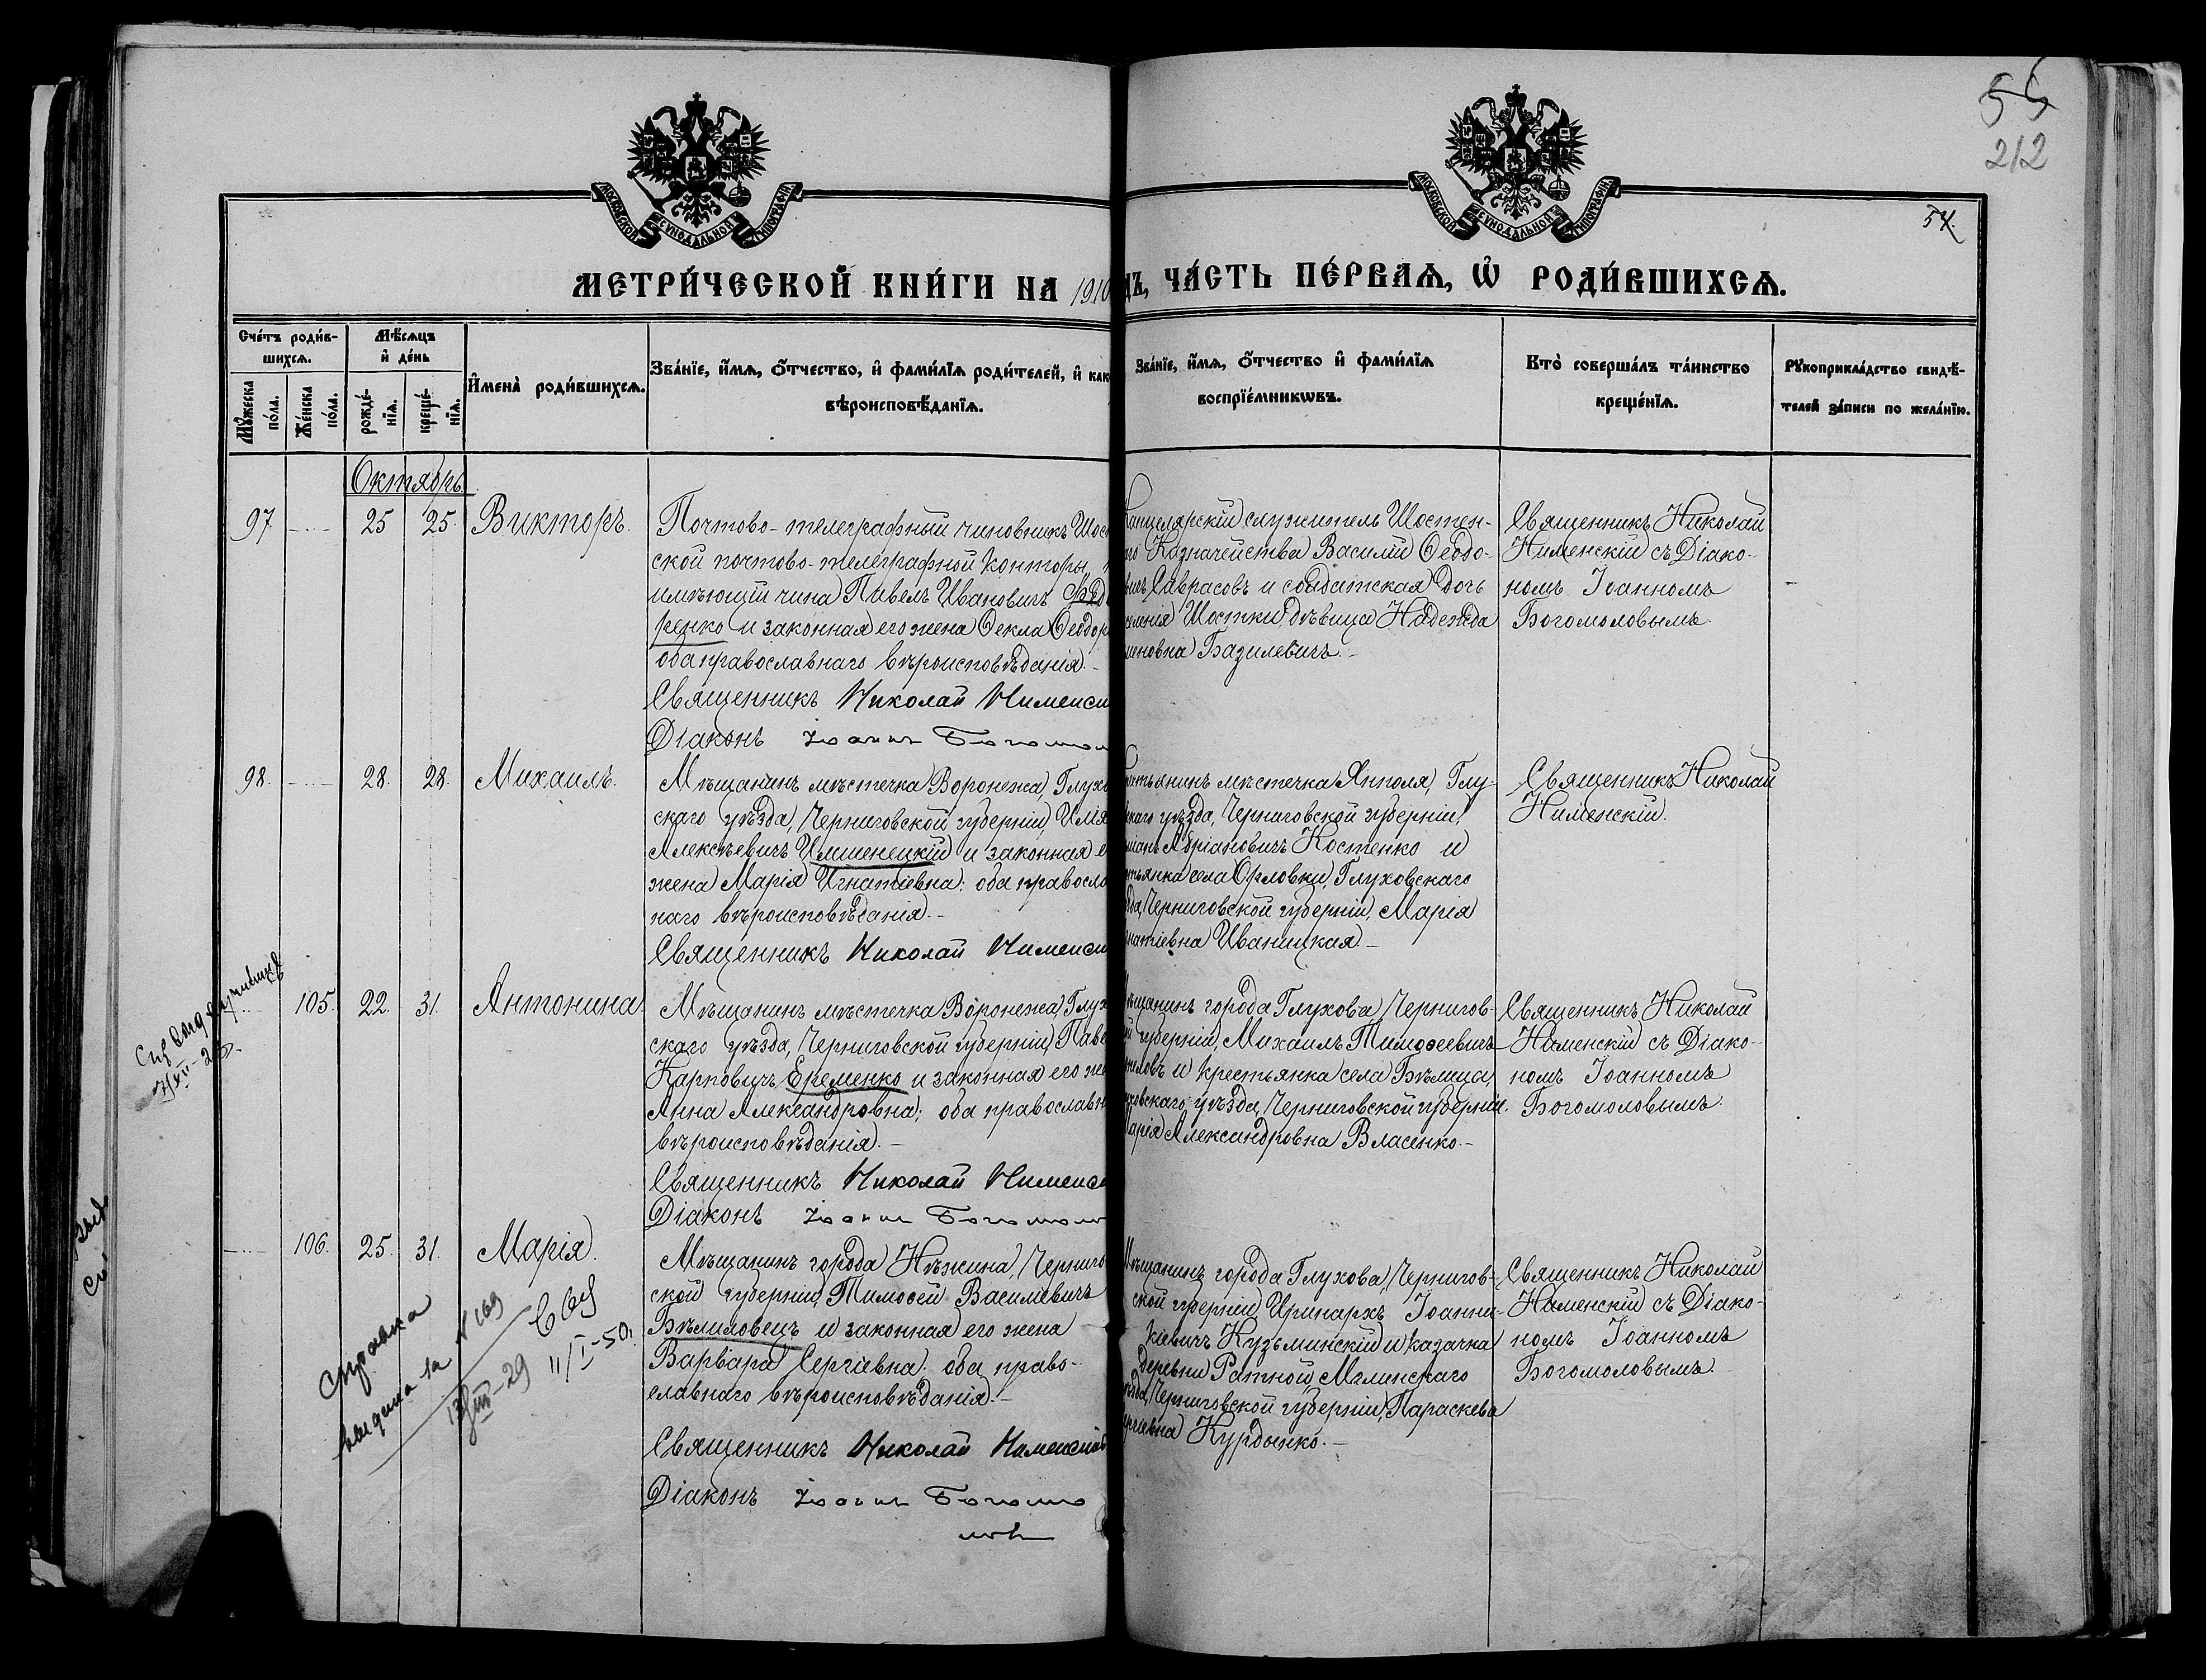 55
212
54.
МОСКОВСКОЙ СУНОДАЛЬНОЙ ТИПОГРАФІИ
МОСКОВСКОЙ СУНОДАЛЬНОЙ ТИПОГРАФІИ
МЕТРИ́ЧЕСКОЙ КНИ́ГИ НА 1910
ДЪ, ЧА́СТЬ ПЕ́РВАѦ, Ѡ РОДИ́ВШИХСѦ.
Сче́тъ роди́в-
шихсѧ.
Мѣ́сѧцъ
и҆ де́нь
Мꙋ́жеска по́ла.
Же́нска по́ла.
рожде́-
нїѧ.
креще́-
нїѧ.
И҆мена̀ роди́вшихсѧ.
Зва́нїе, и҆́мѧ, ѻ҆́тчество, и҆ фами́лїѧ роди́телей, и҆ как
вѣроисповѣ́данїѧ.
Зва́нїе, и҆́мѧ, ѻ҆́тчество и҆ фами́лїѧ
воспрїе́мникѡвъ.
Кто̀ соверша́лъ та́инство
креще́нїѧ.
Рꙋкоприкла́дство свидѣ́-
телей за́писи по жела́нїю.
Октябрь
97
25
25.
Викторъ.
Почтово-телеграфный чиновникъ Шост
ской почтово-телеграфной конторы,
имѣющій чина Павелъ Ивановичъ Ѳедо
ренко и законная его жена Ѳекла Ѳеодор
оба православнаго вѣроисповѣданія.-
Священникъ Николай Нименск
Діаконъ Іоаннъ Богомол
Канцелярскій служитель Шостен-
го Казначейства Василій Ѳеодо-
вичъ Саврасовъ и солдатская дочь
селенія Шостки дѣвица Надежда
меновна Базилевичъ.-
Священникъ Николай
Нименскій съ Діако-
номъ Іоанномъ
Богомоловымъ.
98.
28.
28.
Михаилъ.
Мѣщанинъ мѣстечка Воронежа, Глухо
скаго уѣзда, Черниговской губерніи,
Алексѣевичъ Имшенецкій и законная е
жена Марія Игнатіевна: оба правосла
наго вѣроисповѣданія.-
Священникъ Николай Нименск
стьянинъ мѣстечка Янполя, Глу-
скаго уѣзда, Черниговской губерніи,
Адріановичъ Костенко и
стьянка села Орловки, Глуховскаго
зда, Черниговской губерніи, Марія
гнатіевна Иваницкая.-
Священникъ Николай
Нименскій.
105.
22.
31.
Антонина.
Мѣщанинъ мѣстечка Воронежа, Глух
скаго уѣзда, Черниговской губерніи, Паве
Карповичъ Еременко и законная его же
Анна Александровна; оба православн
вѣроисповѣданія.-
Священникъ Николай Нименск
Діаконъ Іоаннъ Богомол
Мѣщанинъ города Глухова, Чернигов-
й губерніи, Михаилъ Тимоѳеевичъ
ловъ и крестьянка села Бѣлица,
ховскаго уѣзда, Черниговской губерніи.
Марія Александровна Власенко.-
Священникъ Николай
Нименскій съ Діако-
номъ Іоанномъ
Богомоловымъ.
106.
25.
31.
Марія.
Мѣщанинъ города Нѣжина, Черниго
ской губерніи, Тимоѳей Василіевичъ
Бѣлиловецъ и законная его жена
Варвара Сергіевна: оба право-
славнаго вѣроисповѣданія.-
Священникъ Николай Нименскій
Діаконъ Іоаннъ Богомо
ловъ
Мѣщанинъ города Глухова, Чернигов-
ской губерніи, Иринархъ Іоанни-
кіевичъ Кузьминскій и казачка
деревни Ратной, Мглинскаго
ѣзда, Черниговской губерніи, Параскева
ргіевна Курдынко.-
Священникъ Николай
Нименскій съ Діако-
номъ Іоанномъ
Богомоловымъ.
Справка
выдана за № 169
13/III-29
11/I-50.